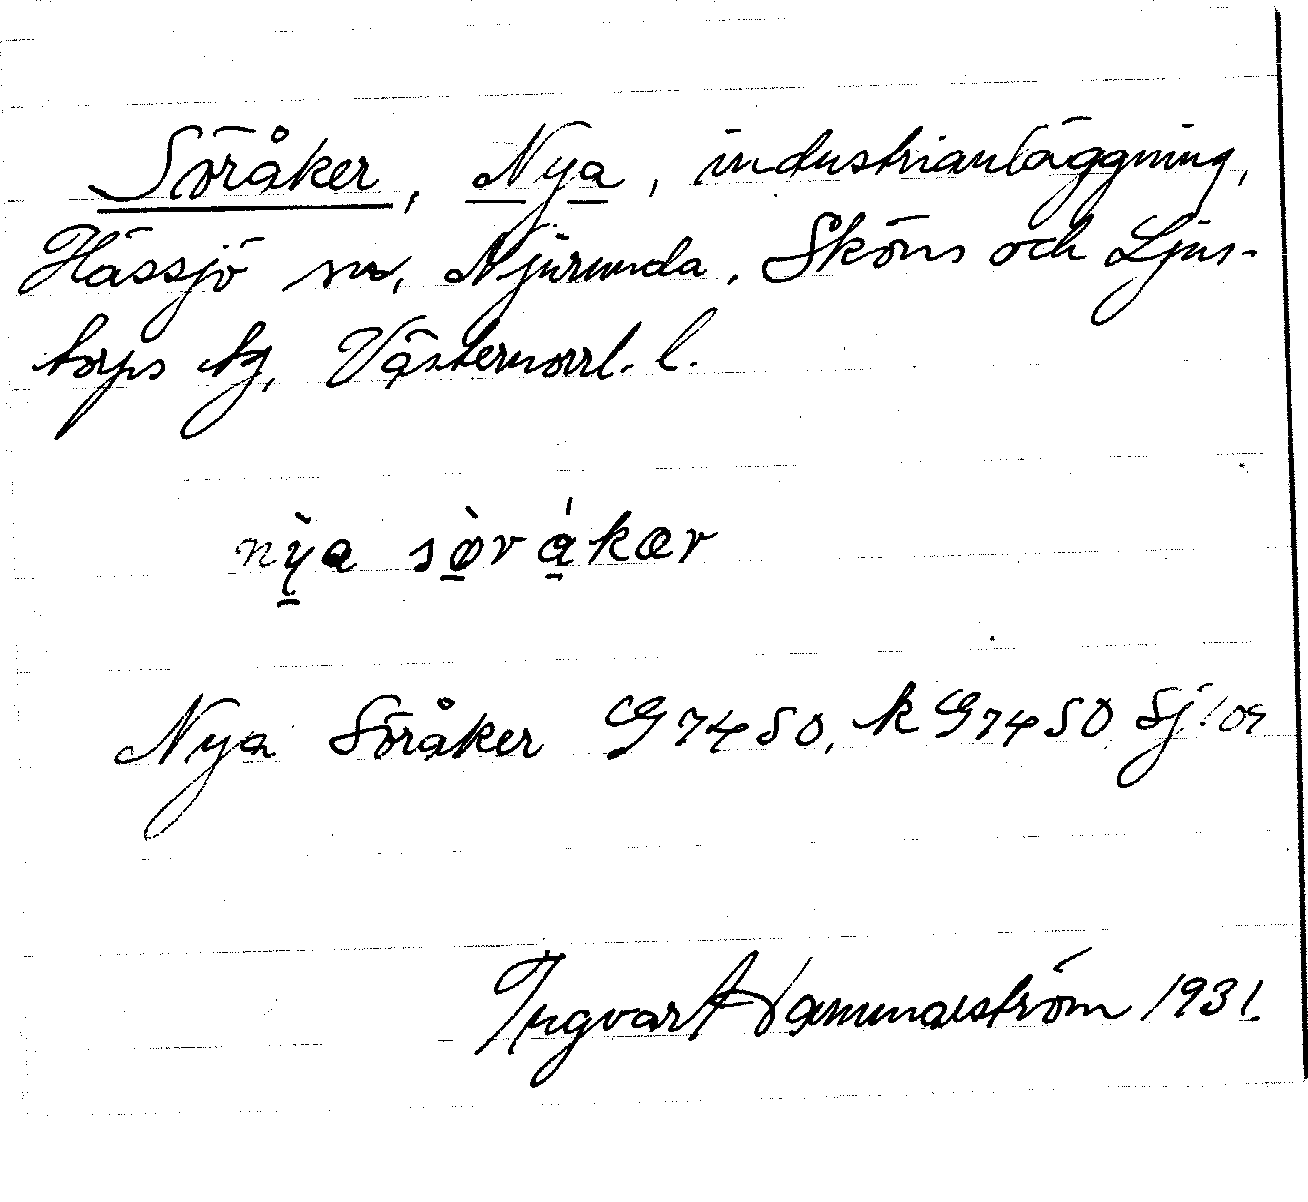 Söråker, Nya, industrianläggning,
Hässjö sn, Njurunda, Sköns och Ljus-
torps tg, Västernorrl. l.
nỳa sø̀rákær
Nya Söråker G7450, k G7450 Sj
Ingvar 1931